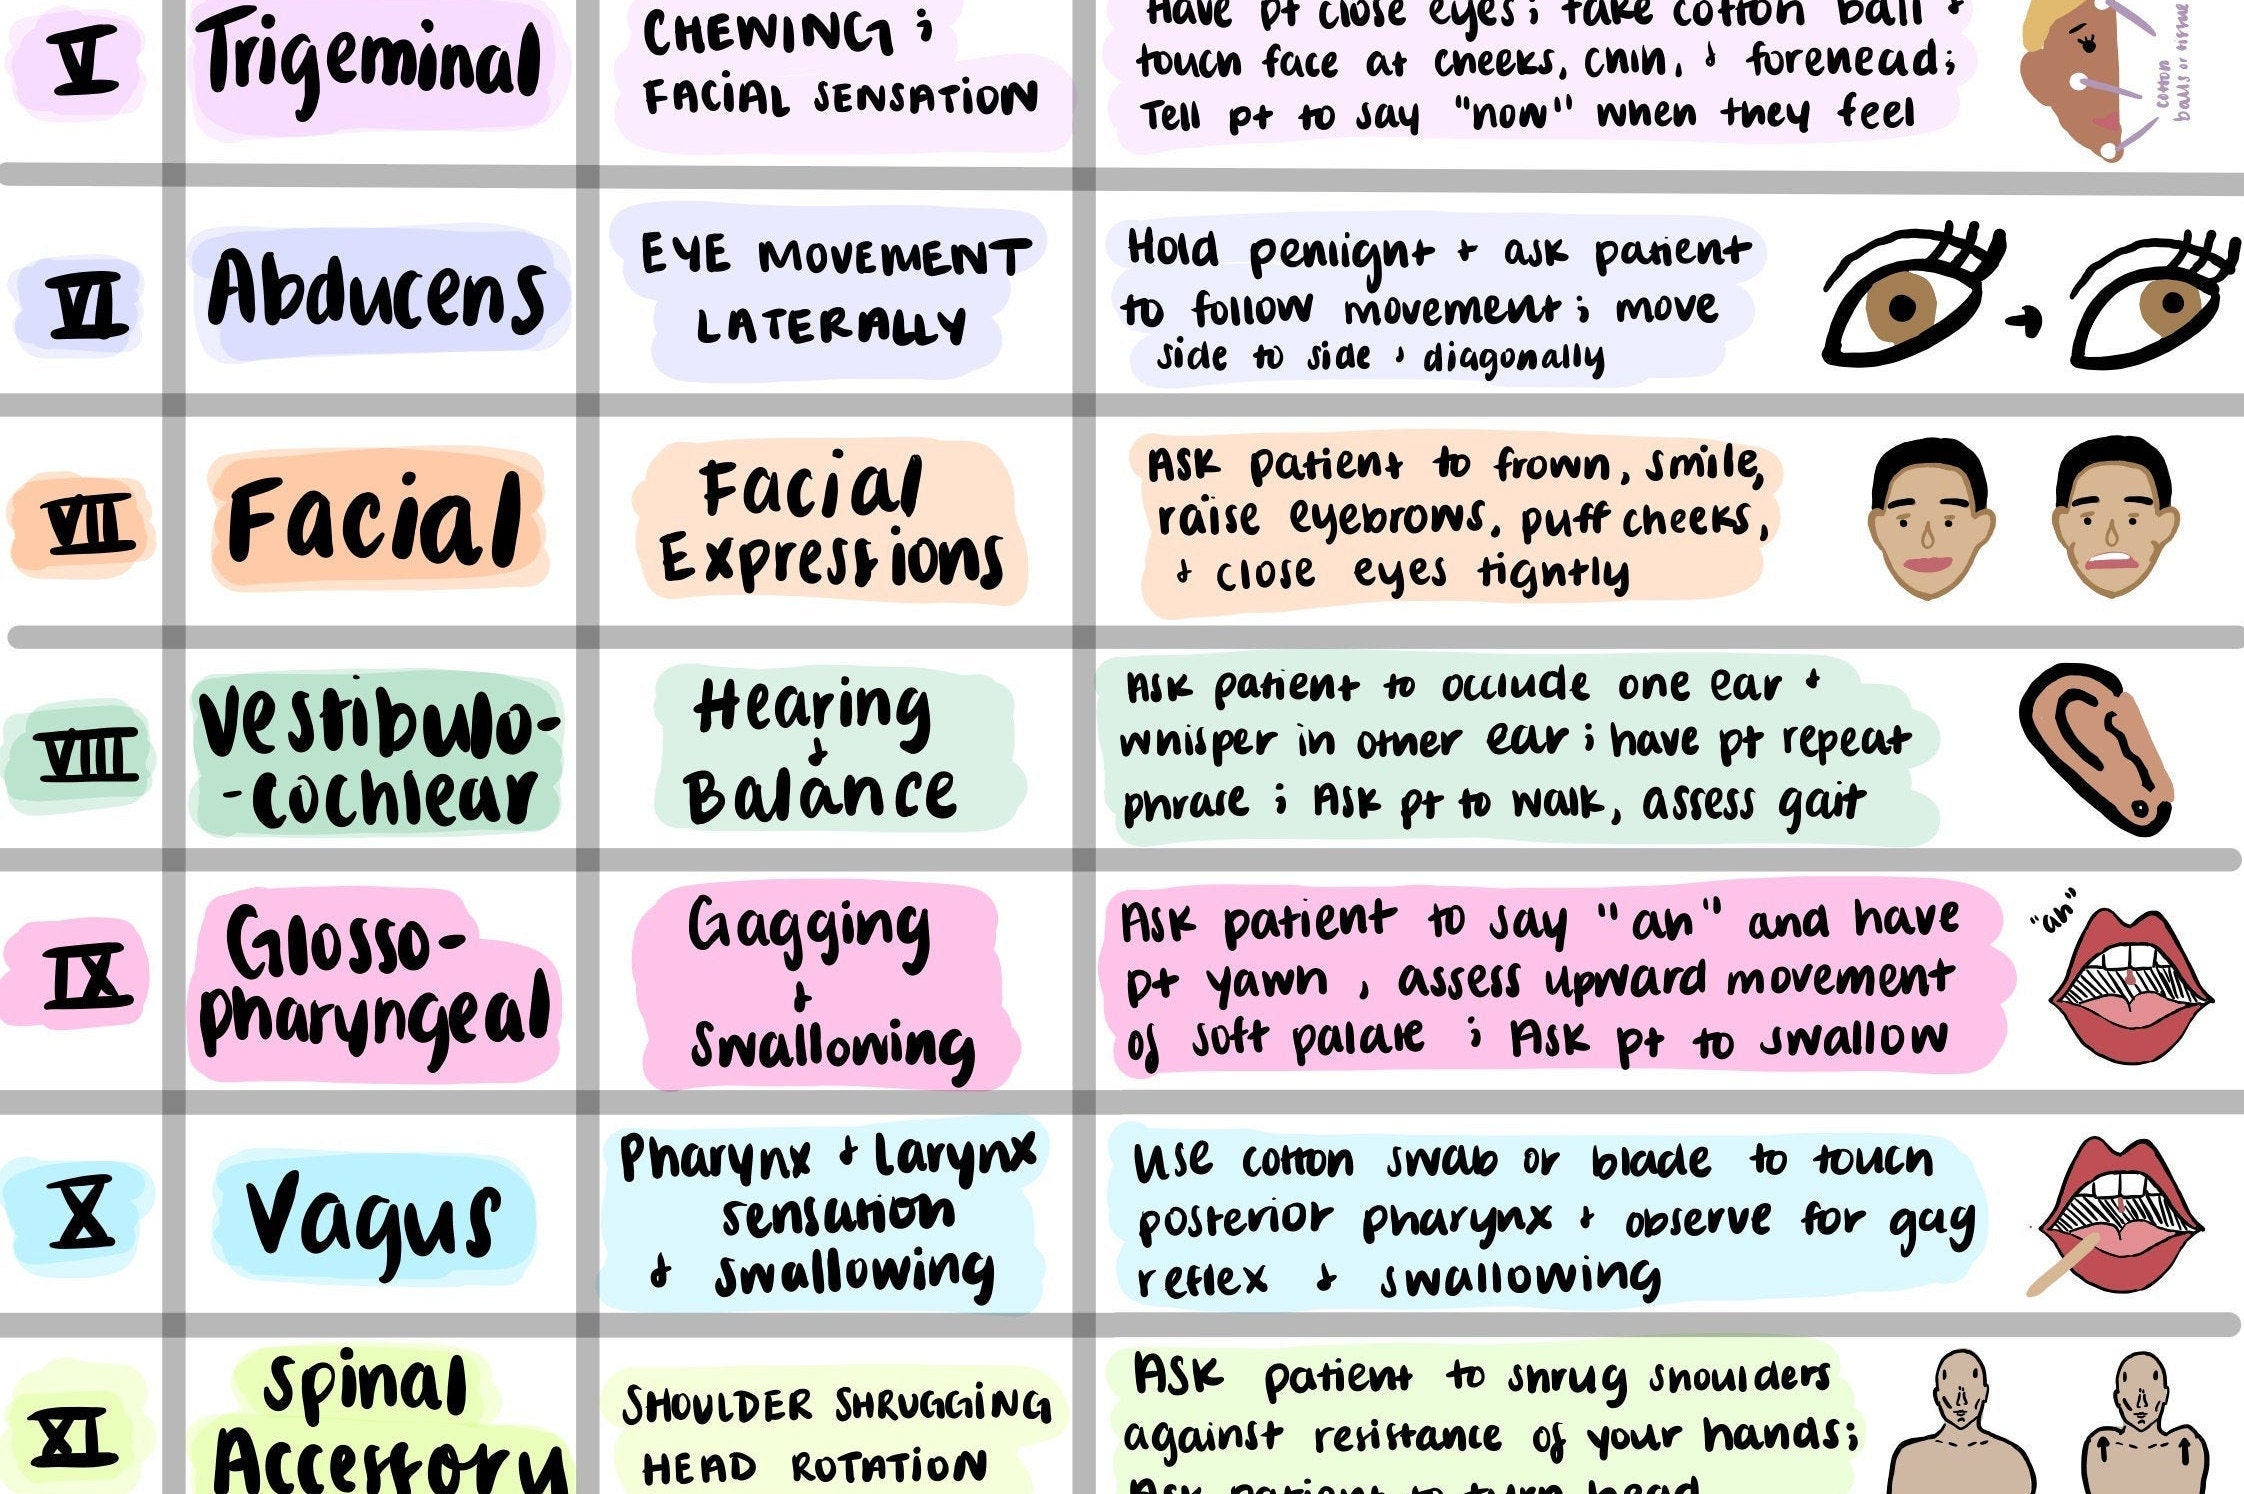 V
Trigeminal
CHEWING ;
FACIAL SENSATION
Have pt close eyes; take cotton ball +
touch face at cheeks, chin, + forehead;
Tell pt to say "now" when they feel
cotton
balls or tissue
VI
Abducens
EYE MOVEMENT
LATERALLY
Hold penlight + ask patient
to follow movement; move
side to side + diagonally
VII
Facial
Facial
Expressions
Ask patient to frown, smile,
raise eyebrows, puff cheeks,
+ close eyes tightly
VIII
Vestibulo-
-cochlear
Hearing
+
Balance
Ask patient to occlude one ear +
whisper in other ear; have pt repeat
phrase; Ask pt to walk, assess gait
IX
Glosso-
pharyngeal
Gagging
+
Swallowing
Ask patient to say "ah" and have
pt yawn, assess upward movement
of soft palate; Ask pt to swallow
"ah"
X
Vagus
Pharynx + Larynx
sensation
+ swallowing
Use cotton swab or blade to touch
posterior pharynx + observe for gag
reflex + swallowing
XI
Spinal
Accessory
SHOULDER SHRUGGING
HEAD ROTATION
ASK patient to shrug shoulders
against resistance of your hands;
Ask patient to turn head